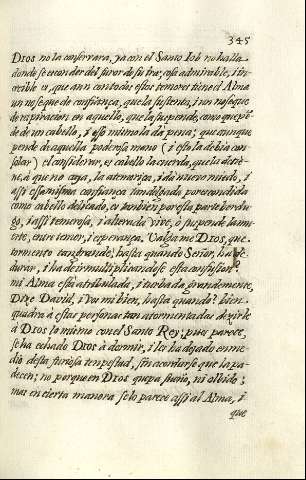 345
Dios no la conservara, ya con el Santo Iob no halla
donde se esconder del furor de su ira; cosa admirable, i in
creible es, que aun con todos estos temores tiene el Alma
un no se que de confiança, que la sustenta, i un no se que
de respiracion en aquello, que la suspende, como que pē
de de un cabello, i esso mismo la dà pena; que aunque
pende de aquella poderosa mano (i esto la debia con
solar) el considerar, es cabello la cuerda, que la detie-
ne, à que no caya, la atemoriça, i dà nuevo miedo, i
assi essa misma confiança tan delgada, por escondida
como cabello delicado, es tambien por esta parte berdu
go, i assi temerosa, i alterada vive, ò suspende la mu
erte, entre temor, i esperança. Valgame Dios, que
tormento tan grande! hasta quando Señor, ha de
durar, i ha de ir multiplicandose esta confusion!
mi Alma està atribulada, i turbada grandemente,
Dize David, i Vos mi bien, hasta quando! bien
quadra à estas personas tan atormentadas dezirle
à Dios lo mismo con el Santo Rey; pues parece,
se ha echado Dios à dormir, i les ha dejado en me-
dio desta furiosa tempestad, sin acordarse que la pa
decen; no porque en Dios quepa sueño, ni olbido;
mas en cierta manera solo parece assi al Alma, i
que